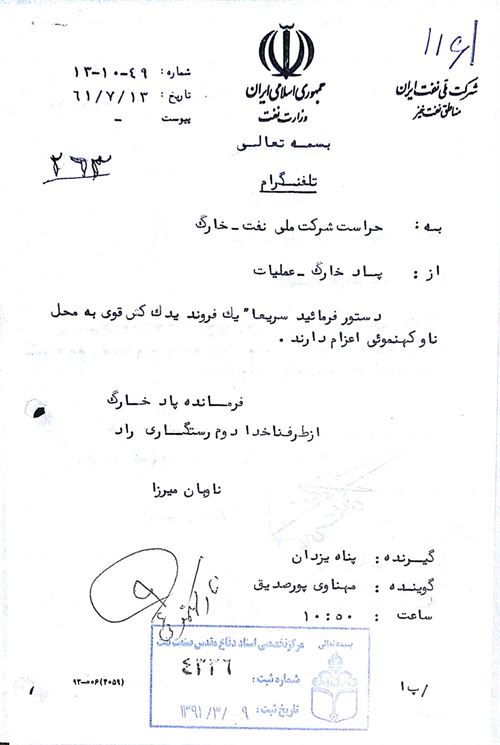 ۱۱۶/
جمهوری اسلامی ایران
وزارت نفت
شرکت ملی نفت ایران
مناطق نفت خیز
شماره : ۴۹-۱۰-۱۳
تاریخ : ۶۱/۷/۱۳
پیوست -
بسمه تعالی
۲۶۳
تلفنگرام
به : حراست شرکت ملی نفت - خارگ
از : پاد خارگ - عملیات
دستور فرمائید سریعا" یک فروند یدک کش قوی به محل
ناو کهنموئی اعزام دارند .
فرمانده پاد خارگ
از طرف ناخدا دوم رستگاری راد
ناوبان میرزا
گیرنده : پناه یزدان
گوینده : مهناوی پورصدیق
ساعت : ۱۰:۵۰
بسمه تعالی
مرکز تخصصی اسناد دفاع مقدس صنعت نفت
شماره ثبت : ۴۳۳۶
تاریخ ثبت : ۱۳۹۱/۳/۰۹
۹۲-۰۰۶(۲۰۵۹)
/پ۱